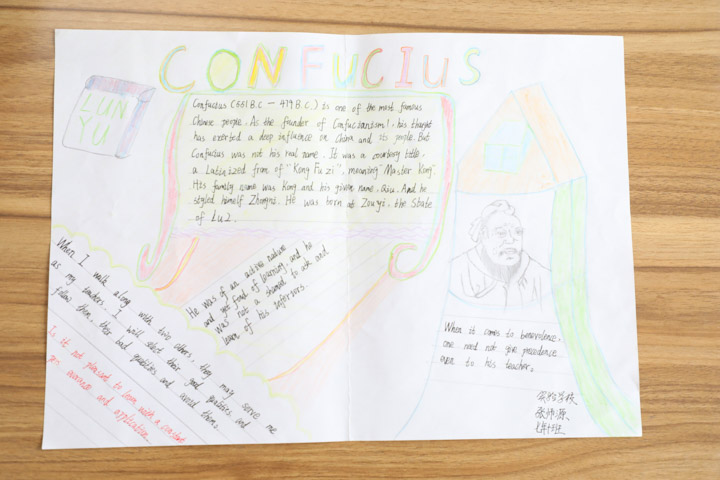 CONFUCIUS
LUN
YU
Confucius (551 B.C — 479 B.C.) is one of the most famous
Chinese people. As the founder of Confucianism1, his thought
has exerted a deep influence on China and its people. But
Confucius was not his real name. It was a courtesy title,
a Latinized from of "Kong Fu zi", meaning "Master Kong".
His family name was Kong and his given name, Qiu. And he
styled himself Zhongni. He was born at Zouyi, the State
of Lu2.
He was of an active nature
and yet fond of learning, and he
was not a shamed to ask and
learn of his inferiors.
When I walk along with two others, they may serve me
as my teachers. I will select their good qualities and
follow them, their bad qualities and avoid them.
Is it not pleasant to learn with a constant
perseverance and application
When it comes to benevolence,
one need not give precedence
even to his teacher.
实验学校